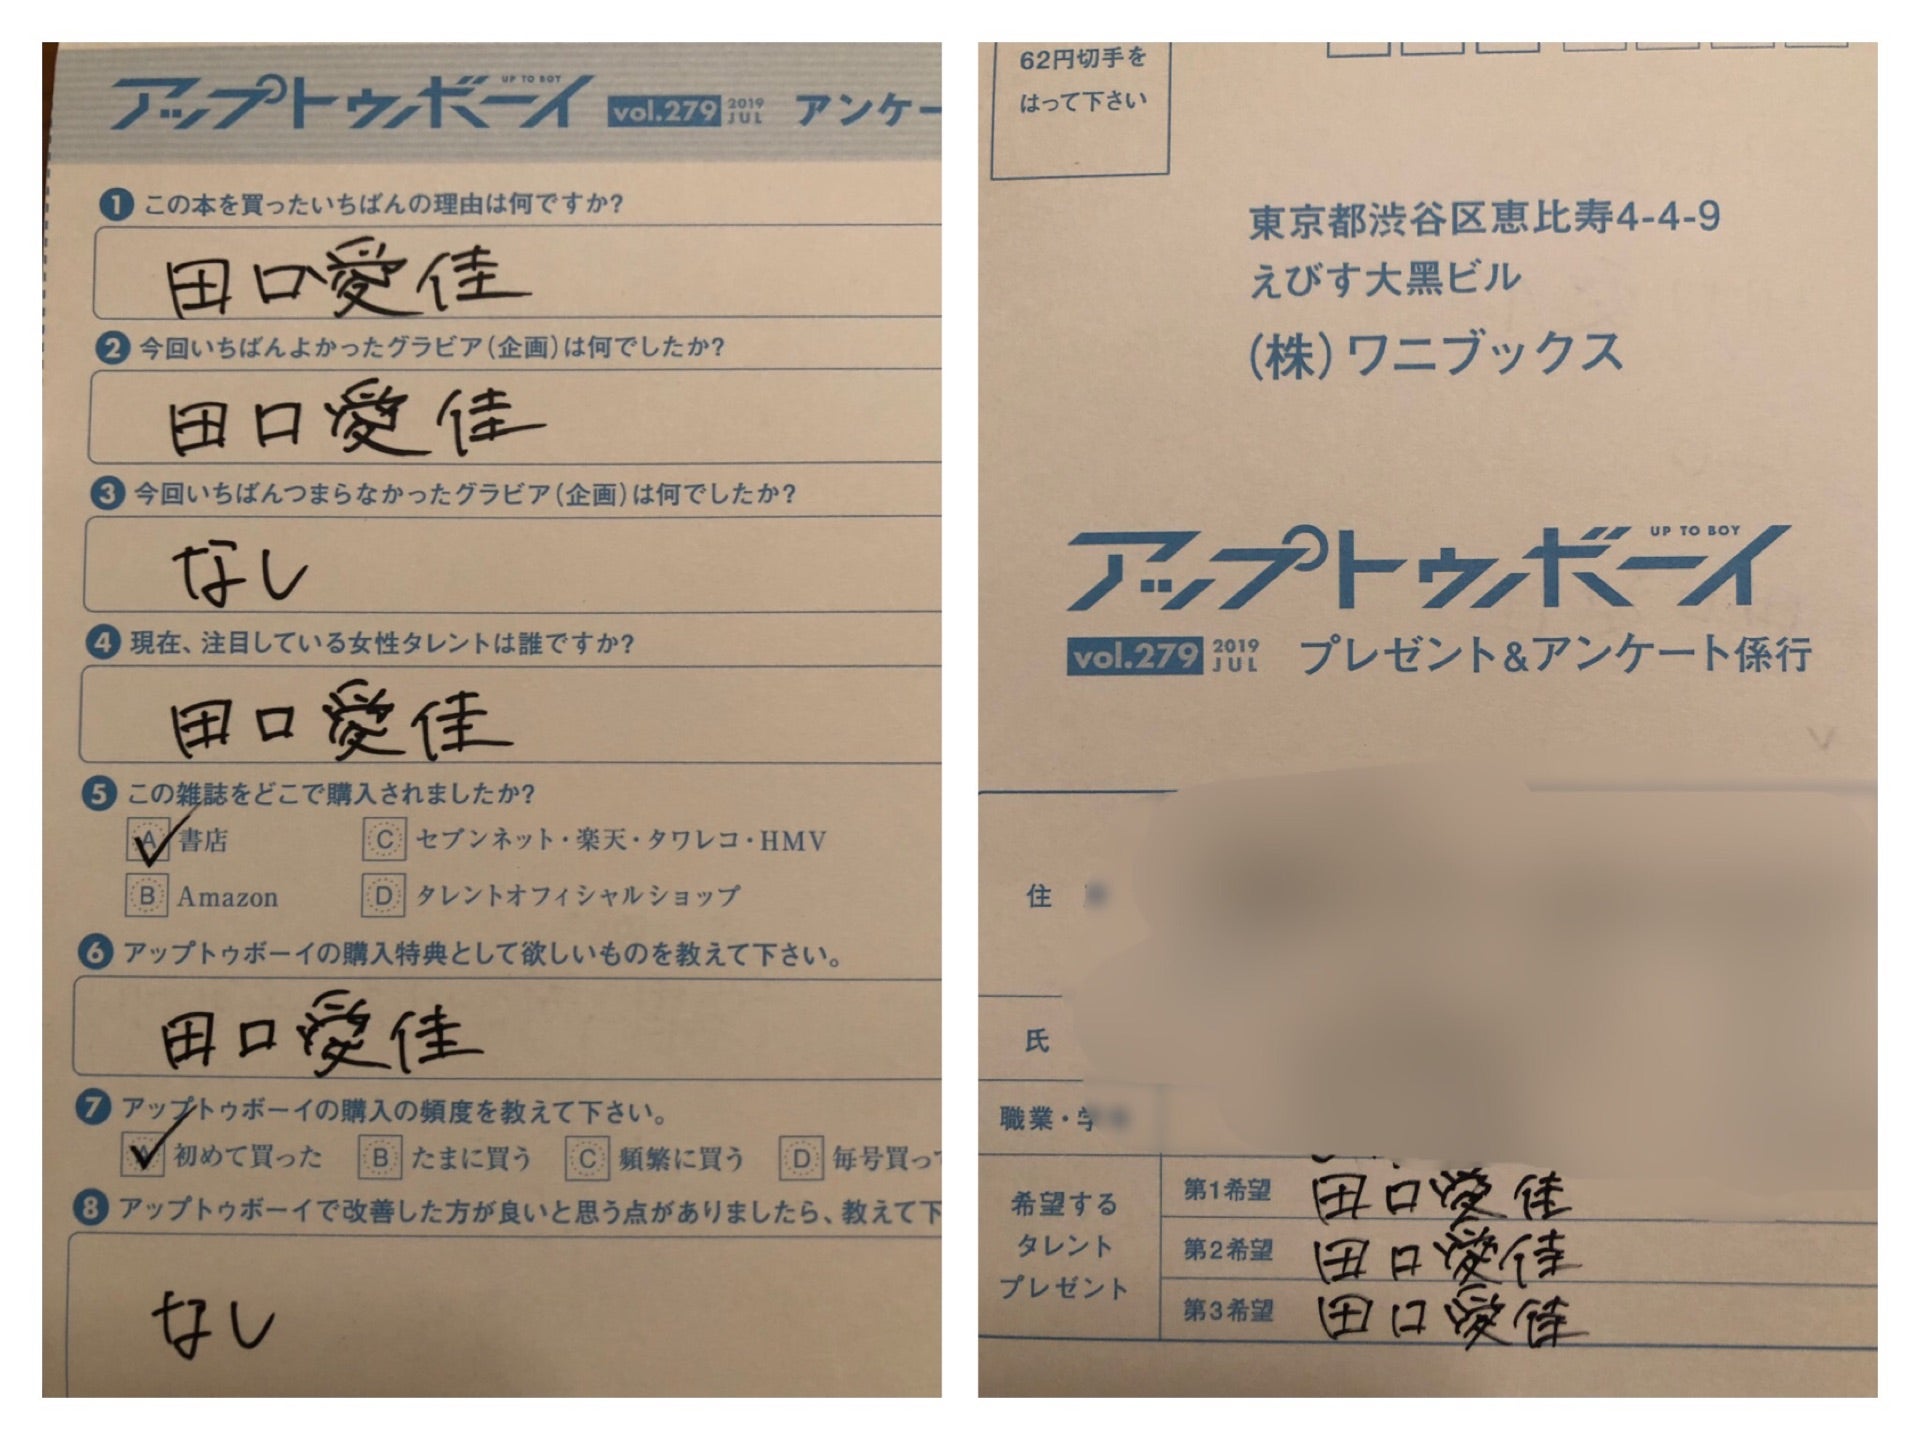 アップトゥボーイ UP TO BOY vol.279 2019 JUL アンケー
1 この本を買ったいちばんの理由は何ですか?
田口愛佳
2 今回いちばんよかったグラビア(企画)は何でしたか?
田口愛佳
3 今回いちばんつまらなかったグラビア(企画)は何でしたか?
なし
4 現在、注目している女性タレントは誰ですか?
田口愛佳
5 この雑誌をどこで購入されましたか?
A 書店 C セブンネット・楽天・タワレコ・HMV
B Amazon D タレントオフィシャルショップ
6 アップトゥボーイの購入特典として欲しいものを教えて下さい。
田口愛佳
7 アップトゥボーイの購入の頻度を教えて下さい。
A 初めて買った B たまに買う C 頻繁に買う D 毎号買って
8 アップトゥボーイで改善した方が良いと思う点がありましたら、教えて下
なし
62円切手を
はって下さい
東京都渋谷区恵比寿4-4-9
えびす大黒ビル
(株)ワニブックス
アップトゥボーイ UP TO BOY
vol.279 2019 JUL プレゼント&アンケート係行
住
氏
職業・学
希望する
タレント
プレゼント
第1希望 田口愛佳
第2希望 田口愛佳
第3希望 田口愛佳